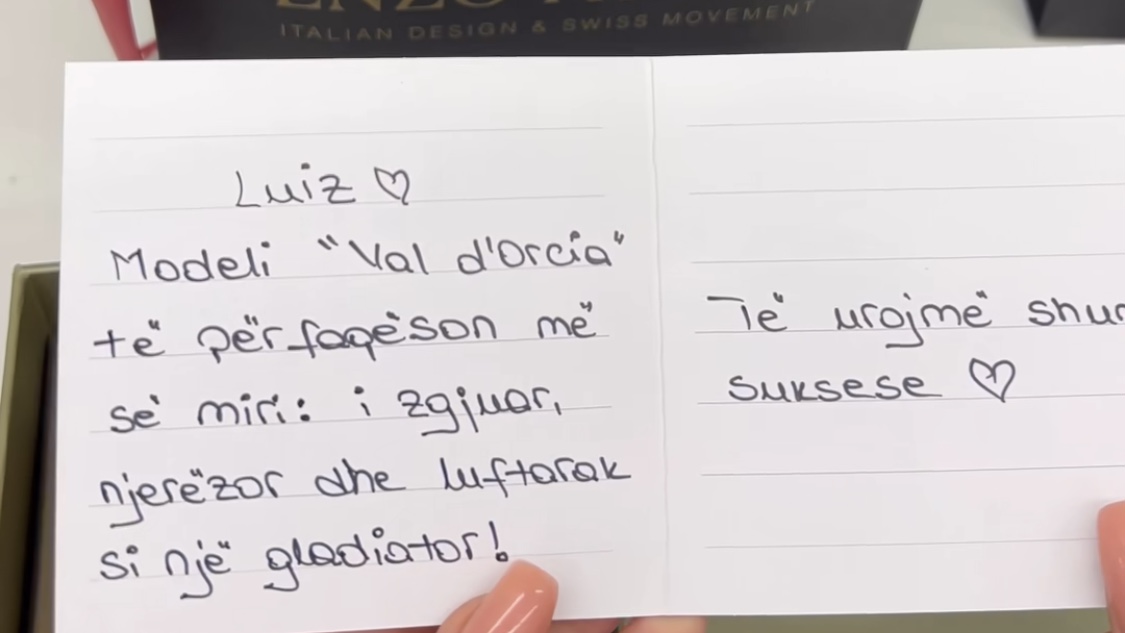 ITALIAN DESIGN & SWISS MOVEMENT
Luiz ♡
Modeli "Val d'Orcia"
të përfaqëson më
së miri: i zgjuar,
njerëzor dhe luftarak
si një gladiator!
Të urojmë
suksese ♡